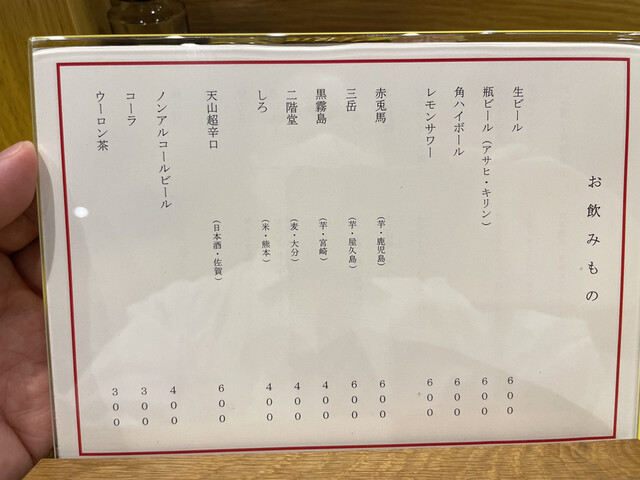 お飲みもの
生ビール 600
瓶ビール（アサヒ・キリン） 600
角ハイボール 600
レモンサワー 600
赤兎馬（芋・鹿児島） 600
三岳（芋・屋久島） 600
黒霧島（芋・宮崎） 400
二階堂（麦・大分） 400
しろ（米・熊本） 400
天山超辛口（日本酒・佐賀） 600
ノンアルコールビール 400
コーラ 300
ウーロン茶 300